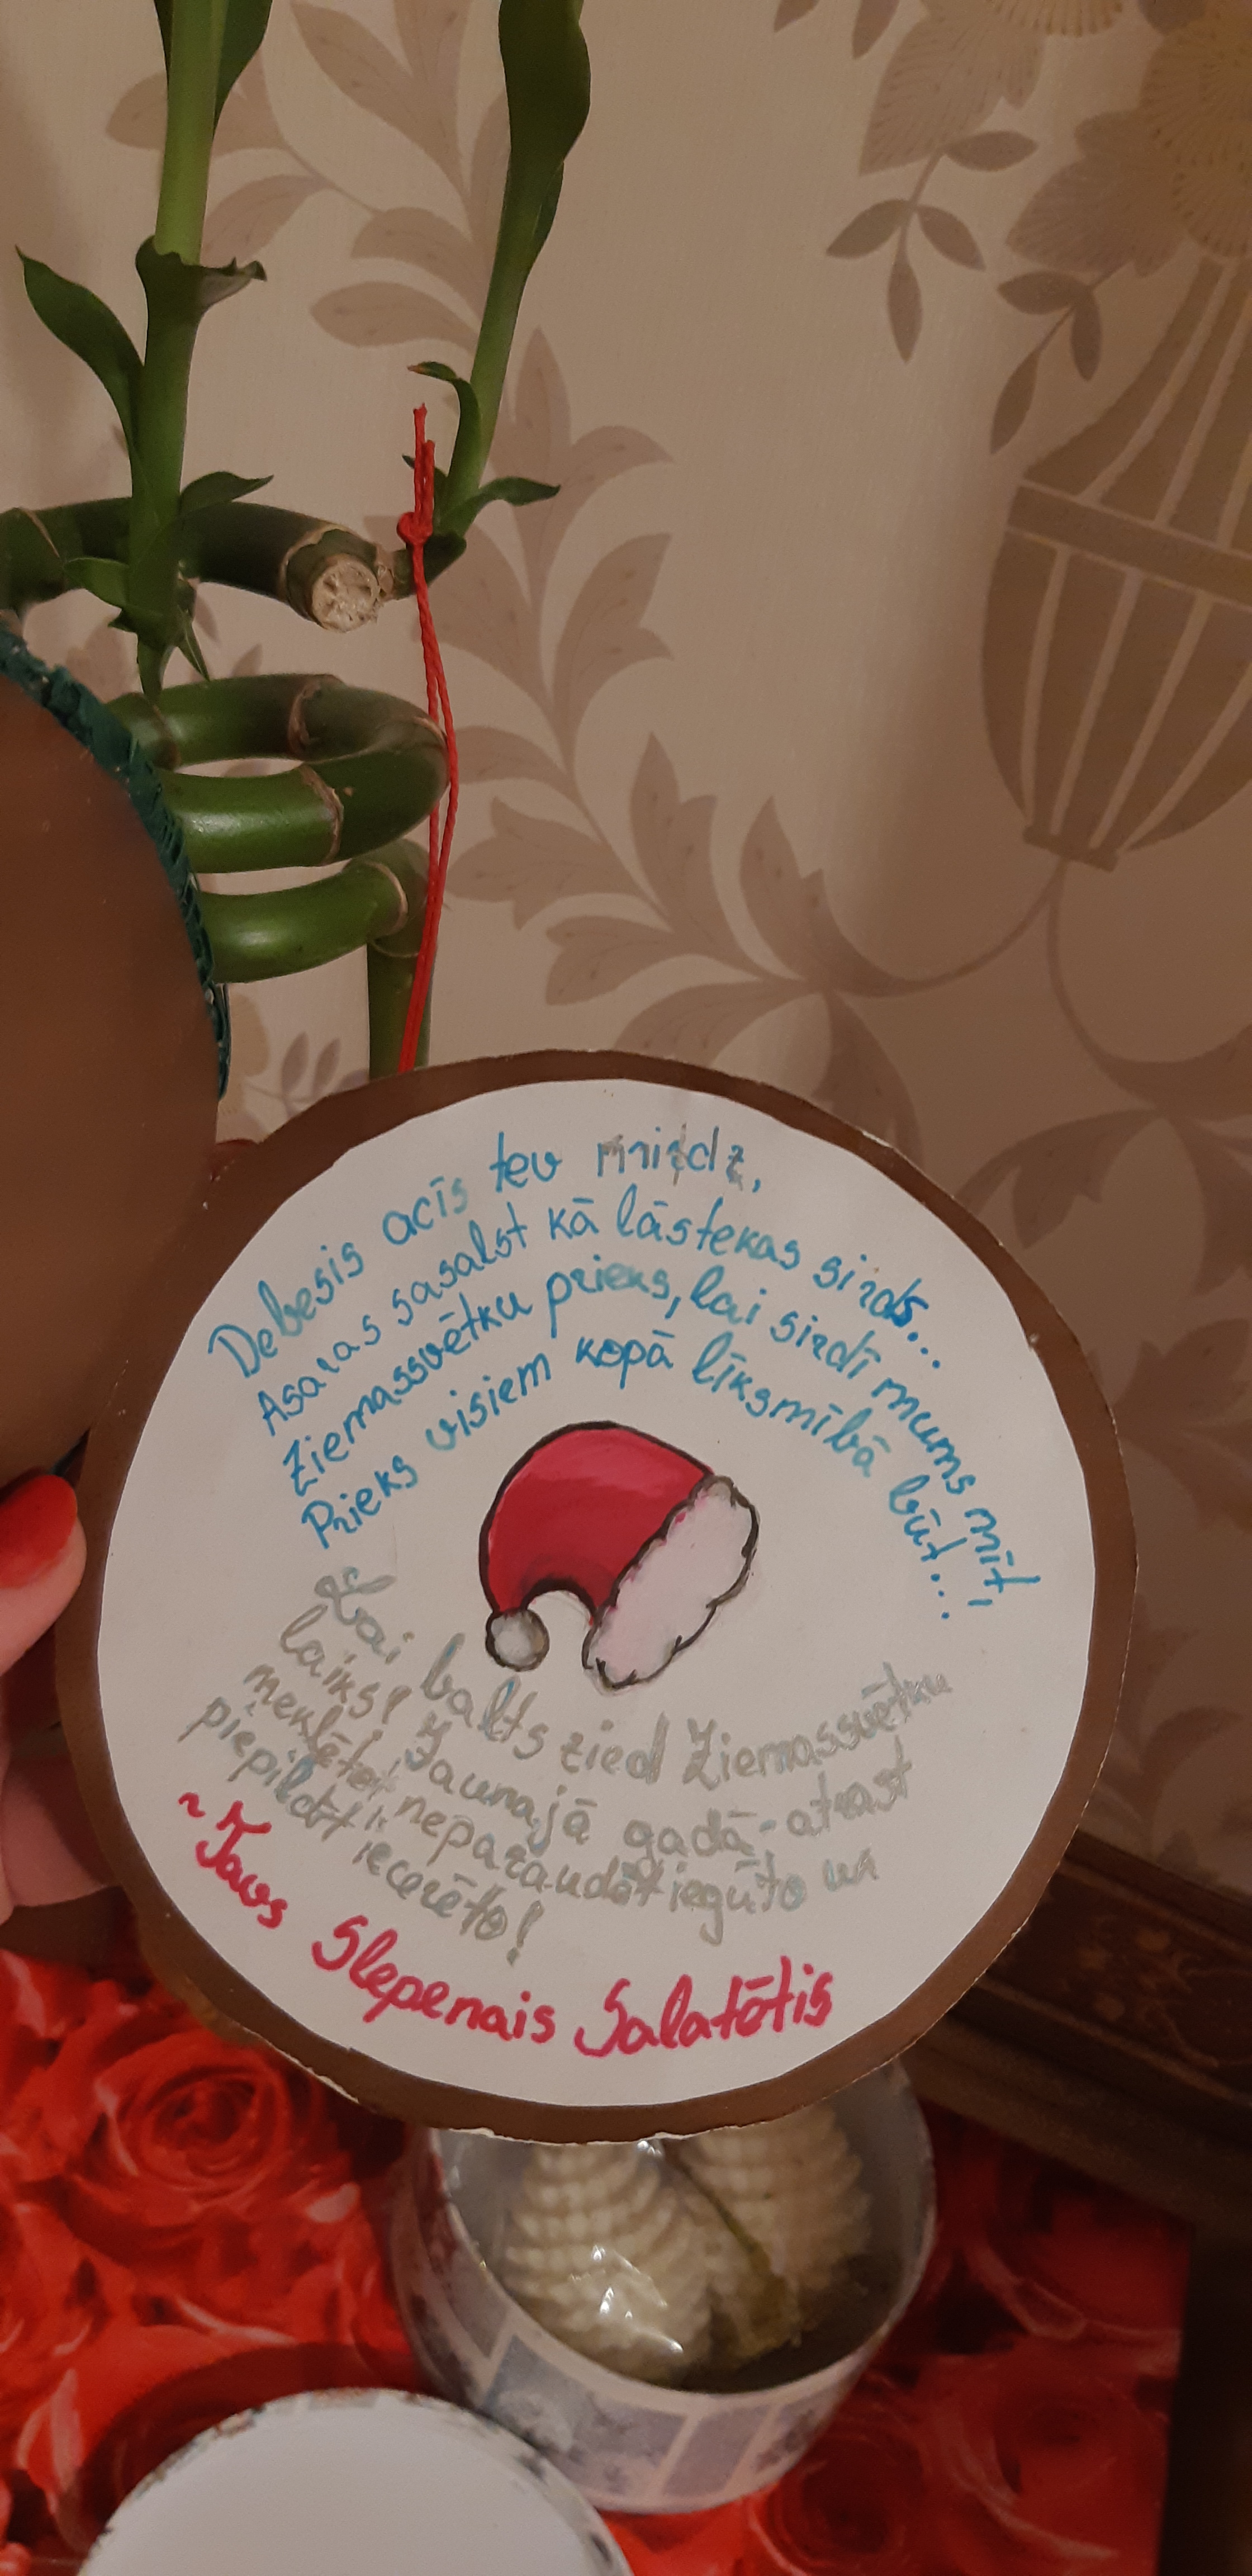 Debesis acīs tev mirdz,
Asaras sasalst kā lāstekas sirds...
Ziemassvētku prieks, lai sirdī mums mīt,
Prieks visiem kopā līksmībā būt...
Lai balts zied Ziemassvētku
laiks! Jaunajā gadā: atrast
meklēto, nepazaudēt iegūto un
piepildīt iecerēto!
~Tavs Slepenais Salatētis